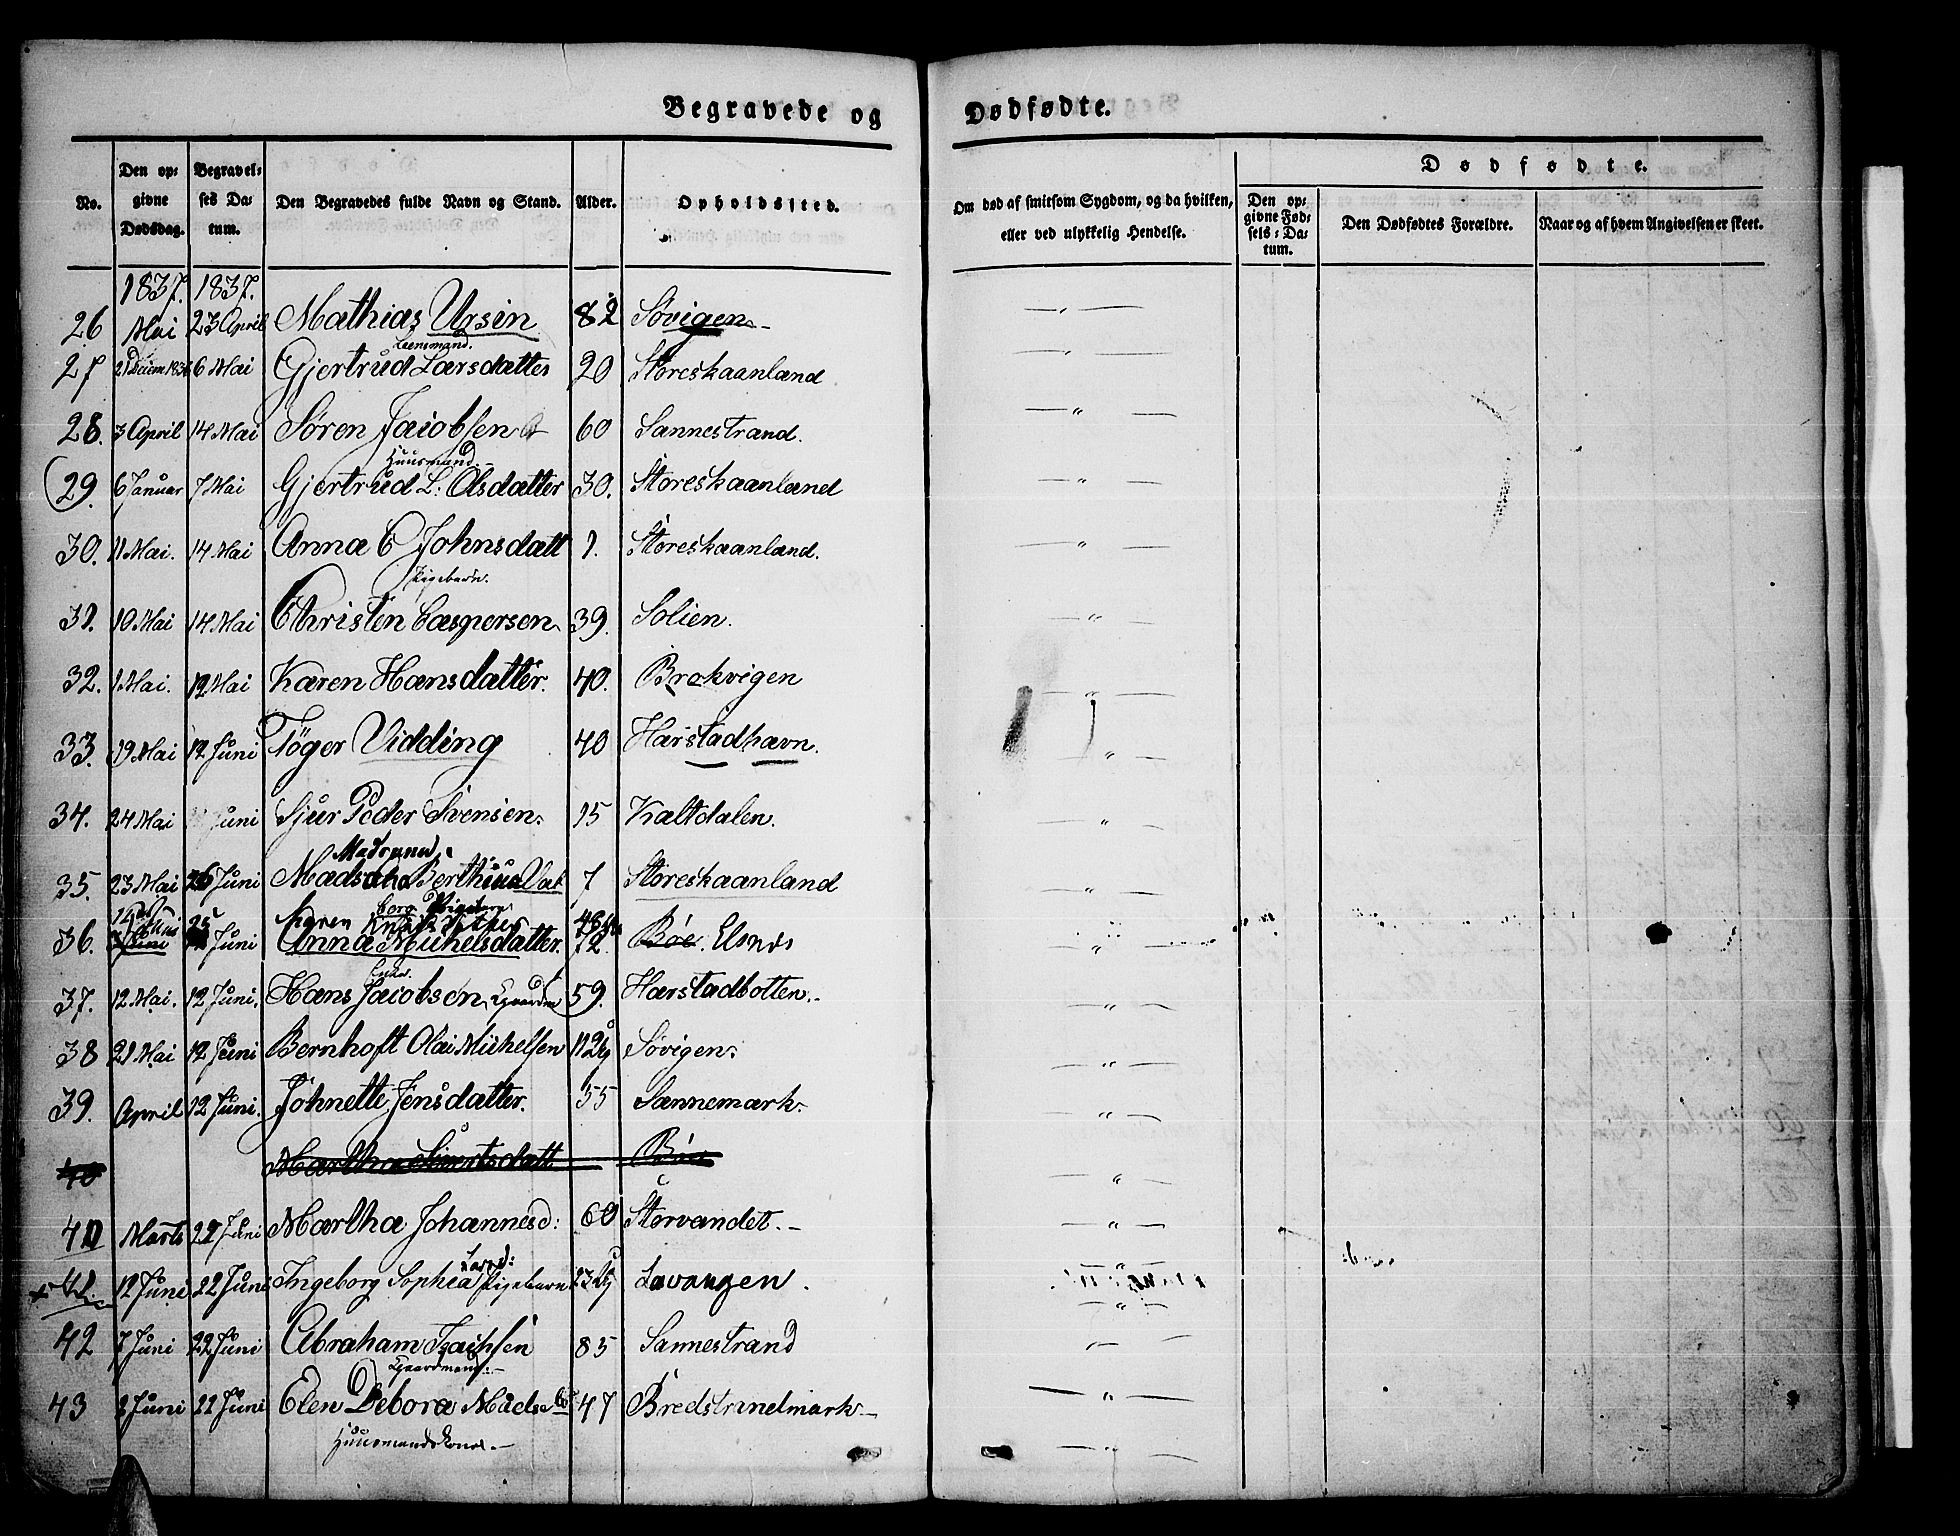 Begravede og Dødfødte.
No. Den opgivne Dødsdag. Begravelses Datum. Den Begravedes fulde Navn og Stand. Alder. Opholdssted. Om død af smitsom Sygdom, og da hvilken, eller ved ulykkelig Hendelse. Dødfødte. Den opgivne Fødsels-Datum. Den Dødfødtes Forældre. Naar og af hvem Angivelsen er skeet.
1837. 1837.
26 Mai 23 April Mathias Ursin 82 Søvigen - — " —
Leensmand.
27 6 Mai Gjertrud Larsdatter 20 Storeskaanland — " —
28. 3 April 14 Mai Søren Jacobsen 60 Sannestrand. — " —
Huusmand. -
29. 6 Januar 7 Mai Gjertrud L: Olsdatter 30. Storeskaanland — " —
30. 11 Mai. 14 Mai Anna C Johnsdatt 1. Storeskaanland. — " —
Pigebarn.
31. 10 Mai 14 Mai Christen Caspersen 39. Solien. — " —
32. 1 Mai. 12 Mai Karen Hansdatter. 40. Brokvigen — " —
33. 19 Mai 12 Juni Töger Vidding 40 Harstadhavn. — " —
34. 24 Mai Juni Sjur Peder Svensen. 15 Kaltdalen. — " —
35. 23 Mai 26 Juni Madsaha Berthine 7 Storeskaanland — " —
Pigebarn
Karen
36. Juni Anna Michelsdatter. 72. Bøe. Elsnes — " —
Enke.
37. 12 Mai. 12 Juni. Hans Jacobsen, Gaardm 59. Harstadbotten. - — " —
38 21 Mai 12 Juni Bernhoft Olai Michelsen Søvigen. — " —
39. April 12 Juni. Johnette Jensdatter. 55 Sannemark. — " —
40 Martha Sivertsdatt Bøe — " —
40 Marts 22 Juni Martha Johannesd: 60 Storvandet. - — " —
Larsd:
41. 12 Juni 22 Juni Ingeborg Sophia Pigebarn Lavangen. — " —
42 7 Juni 22 Juni Abraham Isachsen 85 Sannestrand
Gaardmand. -
43 2 Juni 22 Juni Elen Debora Madsd 47 Bredstrandmark - — " —
Huusmandskone. -